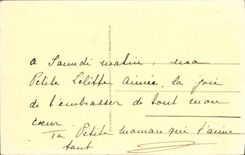 a Samedi matin, ma
Petite Lilitte Aimée, la joie
de t'embrasser de tout mon
cœur
Ta Petite maman qui t'aime
tant